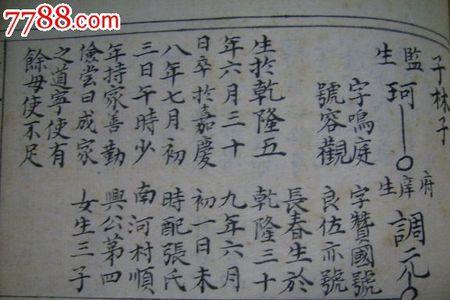 7788.com
子林子
監生
珂
字鳴庭
號容觀
生於乾隆五
年六月三十
日卒於嘉慶
八年七月初
三日午時少
年持家善勤
儉嘗曰成家
之道寧使有
餘毋使不足
府庠生
調
字贊國號
良佐亦號
長春生於
乾隆三十
九年六月
初一日未
時配張氏
南河村順
興公第四
女生三子